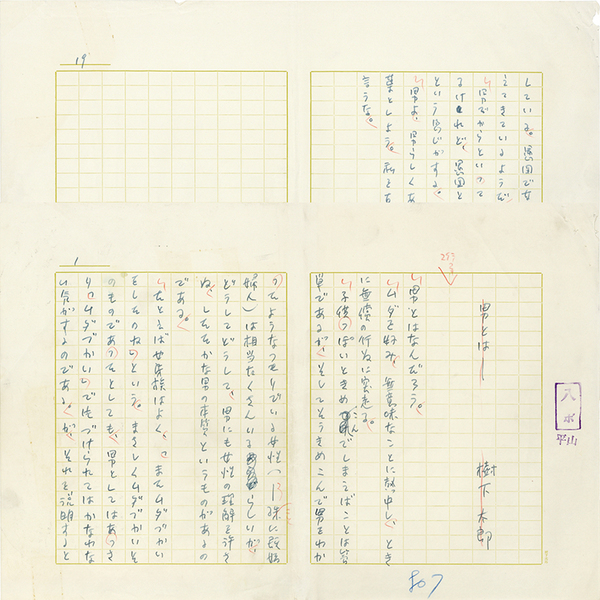 19
している。周囲で女
えてきているようだ
男だからといって
るけれど、周囲と
という感じがする。
男よ、男らしくあ
葉としよう。私を古
言うな。
1
男とは──
樹下太郎
男とはなんだろう。
ムダを好み、無意味なことに熱中し、とき
に無償の行為に突走る。
子供っぽいときめこんでしまえばことは簡
単であるが、そしてそうきめこんで男をわか
ったようなつもりでいる女性(殊に既婚
婦人)は相当たくさんいるらしいが、
どうしてどうして、男にも女性の理解を許さ
ぬ、したたかな男の本質というものがあるの
である。
たとえば女族はよく、またムダづかい
をしたのね、という。まさしくムダづかいそ
のものであったとしても、男としてはあっさ
りムダづかいでかたづけられてはかなわな
い気がするのである。が、それを説明すると
平山